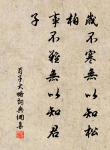 歲不寒無以知松
柏
事不難無以知君
子
荀子大略詞典網集